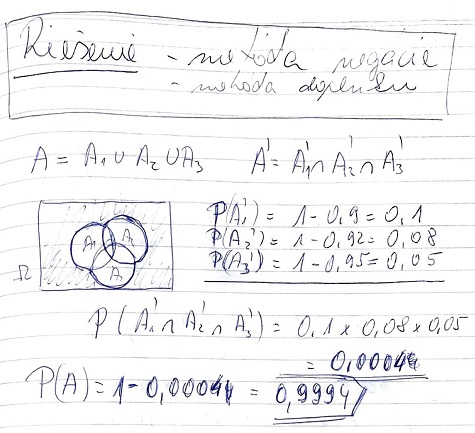 Riešenie - metóda negácie
- metoda doplnku
A = A₁ ∪ A₂ ∪ A₃ A' = A₁' ∩ A₂' ∩ A₃'
A₁ A₂
A₃
Ω
P(A₁') = 1 - 0,9 = 0,1
P(A₂') = 1 - 0,92 = 0,08
P(A₃') = 1 - 0,95 = 0,05
P(A₁' ∩ A₂' ∩ A₃') = 0,1 x 0,08 x 0,05
= 0,0004
P(A) = 1 - 0,0004 = 0,9994